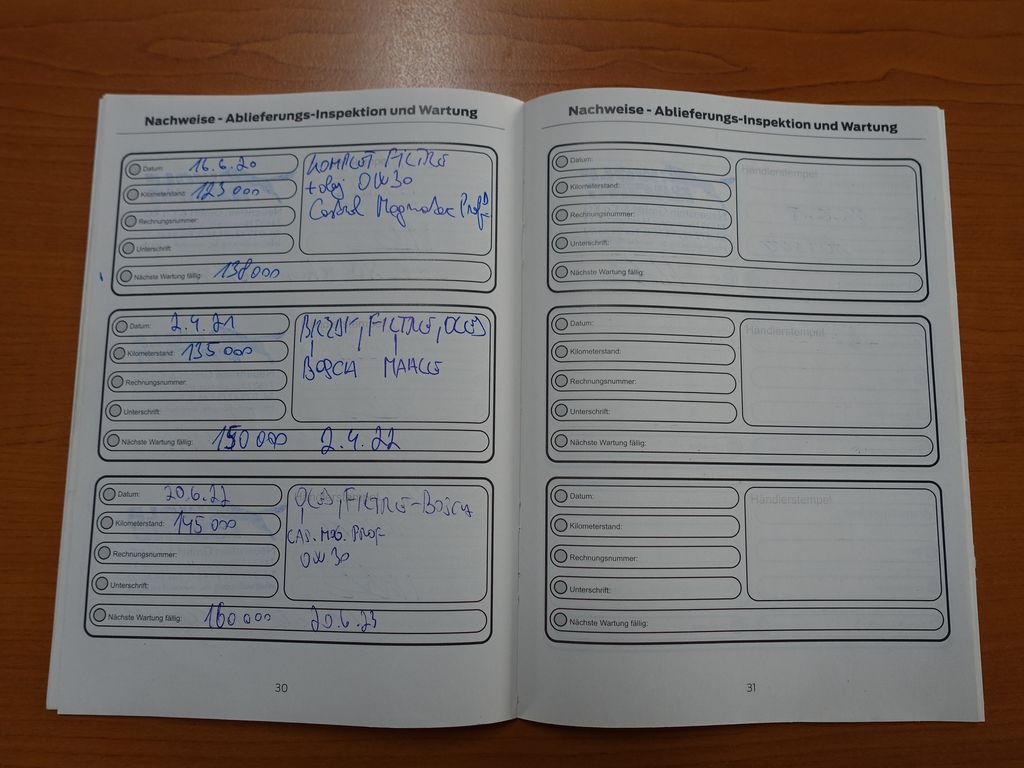 Nachweise - Ablieferungs-Inspektion und Wartung
Datum: 16.6.20
Kilometerstand: 123 000
Rechnungsnummer:
Unterschrift:
KOMPLET FILTRE
+ olej 0W30
Castrol Magnatec Prof
Nächste Wartung fällig: 138 000
Datum: 2.4.21
Kilometerstand: 135 000
Rechnungsnummer:
Unterschrift:
FILTRE, OLEJ
BOSCH MAHLE
Nächste Wartung fällig: 150 000 2.4.22
Datum: 20.6.22
Kilometerstand: 145 000
Rechnungsnummer:
Unterschrift:
OLEJ, FILTRE-BOSCH
CAS. MAG. PROF
0W30
Nächste Wartung fällig: 160 000 20.6.23
30
Nachweise - Ablieferungs-Inspektion und Wartung
Datum:
Kilometerstand:
Rechnungsnummer:
Unterschrift:
Händlerstempel
Nächste Wartung fällig:
Datum:
Kilometerstand:
Rechnungsnummer:
Unterschrift:
Händlerstempel
Nächste Wartung fällig:
Datum:
Kilometerstand:
Rechnungsnummer:
Unterschrift:
Händlerstempel
Nächste Wartung fällig:
31